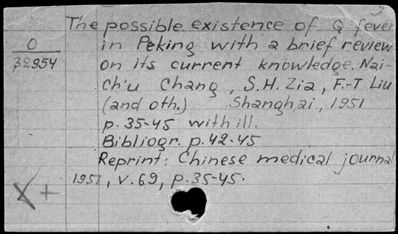 The possible existence of Q fever
in Peking with a brief review
on its current knowledge. Nai-
ch'u Chang, S.H. Zia, F.-T Liu
(and oth.) Shanghai, 1951
p. 35-45 with ill.
Bibliogr. p. 42-45
Reprint: Chinese medical journal,
1951, v. 69, p. 35-45.
O
32954
X+